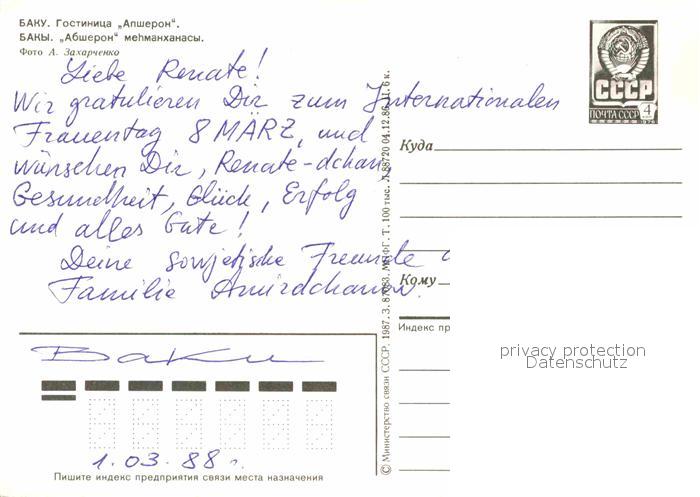 БАКУ. Гостиница „Апшерон“.
БАКЫ. „Абшерон“ меһманханасы.
Фото А. Захарченко
Liebe Renate!
Wir gratulieren Dir zum Internationalen
Frauentag 8 MÄRZ, und
wünschen Dir, Renate-dchan,
Gesundheit, Glück, Erfolg
und alles Gute!
Deine sowjetische Freunde
Familie Amirdchanow.
Баки
1.03.88 г.
Пишите индекс предприятия связи места назначения
© Министерство связи СССР. 1987. З. 87083. МПФГ. Т. 100 тыс. Л 88720 04.12.86. Ц. 6 к.
СССР
ПОЧТА СССР 4
1976
Куда
Кому
Индекс пр
privacy protection
Datenschutz